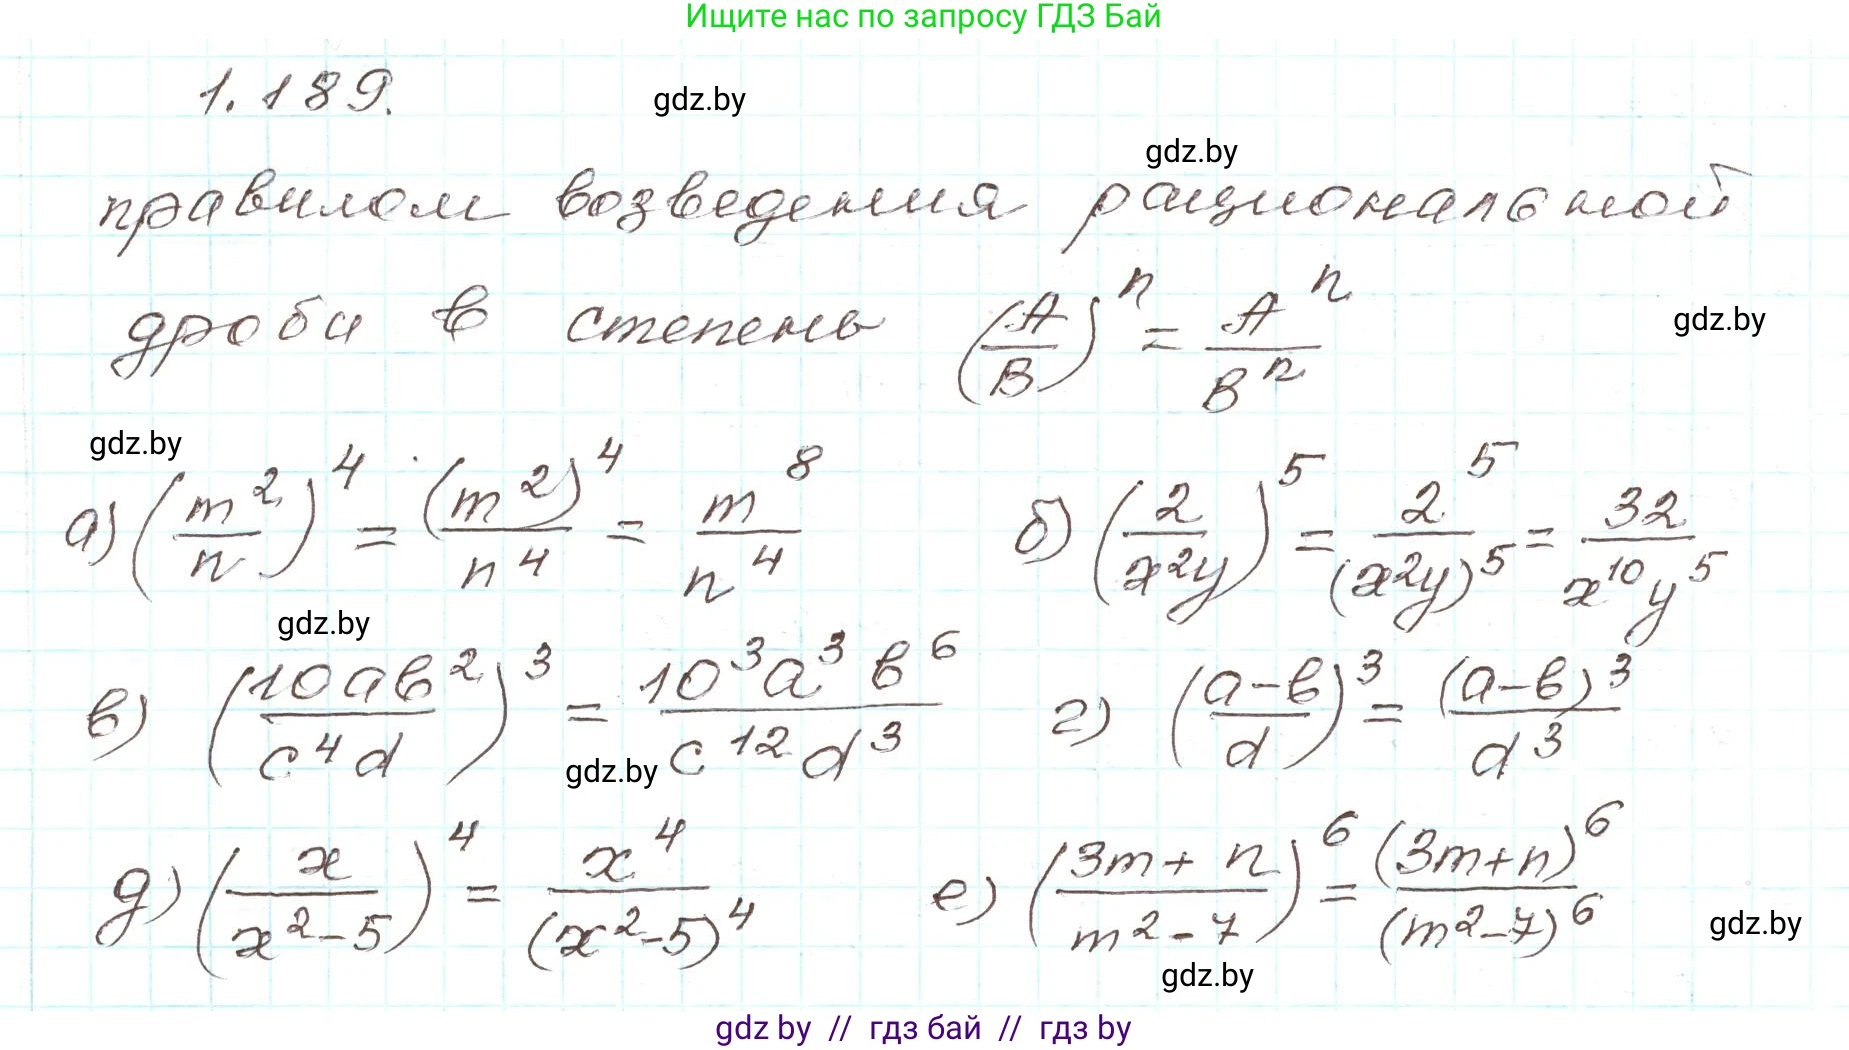 Ищите нас по запросу ГДЗ Бай
1.189.
gdz.by
gdz.by
правилом возведения рациональной
дроби в степень (A/B)^n = A^n/B^n
gdz.by
gdz.by
а) (m^2/n)^4 = (m^2)^4/n^4 = m^8/n^4 б) (2/(x^2y))^5 = 2^5/(x^2y)^5 = 32/(x^10y^5)
gdz.by
в) (10ab^2/(c^4d))^3 = 10^3a^3b^6/(c^12d^3) г) ((a-b)/d)^3 = (a-b)^3/d^3
gdz.by
д) (x/(x^2-5))^4 = x^4/(x^2-5)^4 е) ((3m+n)/(m^2-7))^6 = (3m+n)^6/(m^2-7)^6
gdz.by
gdz.by
gdz by // гдз бай // гдз by